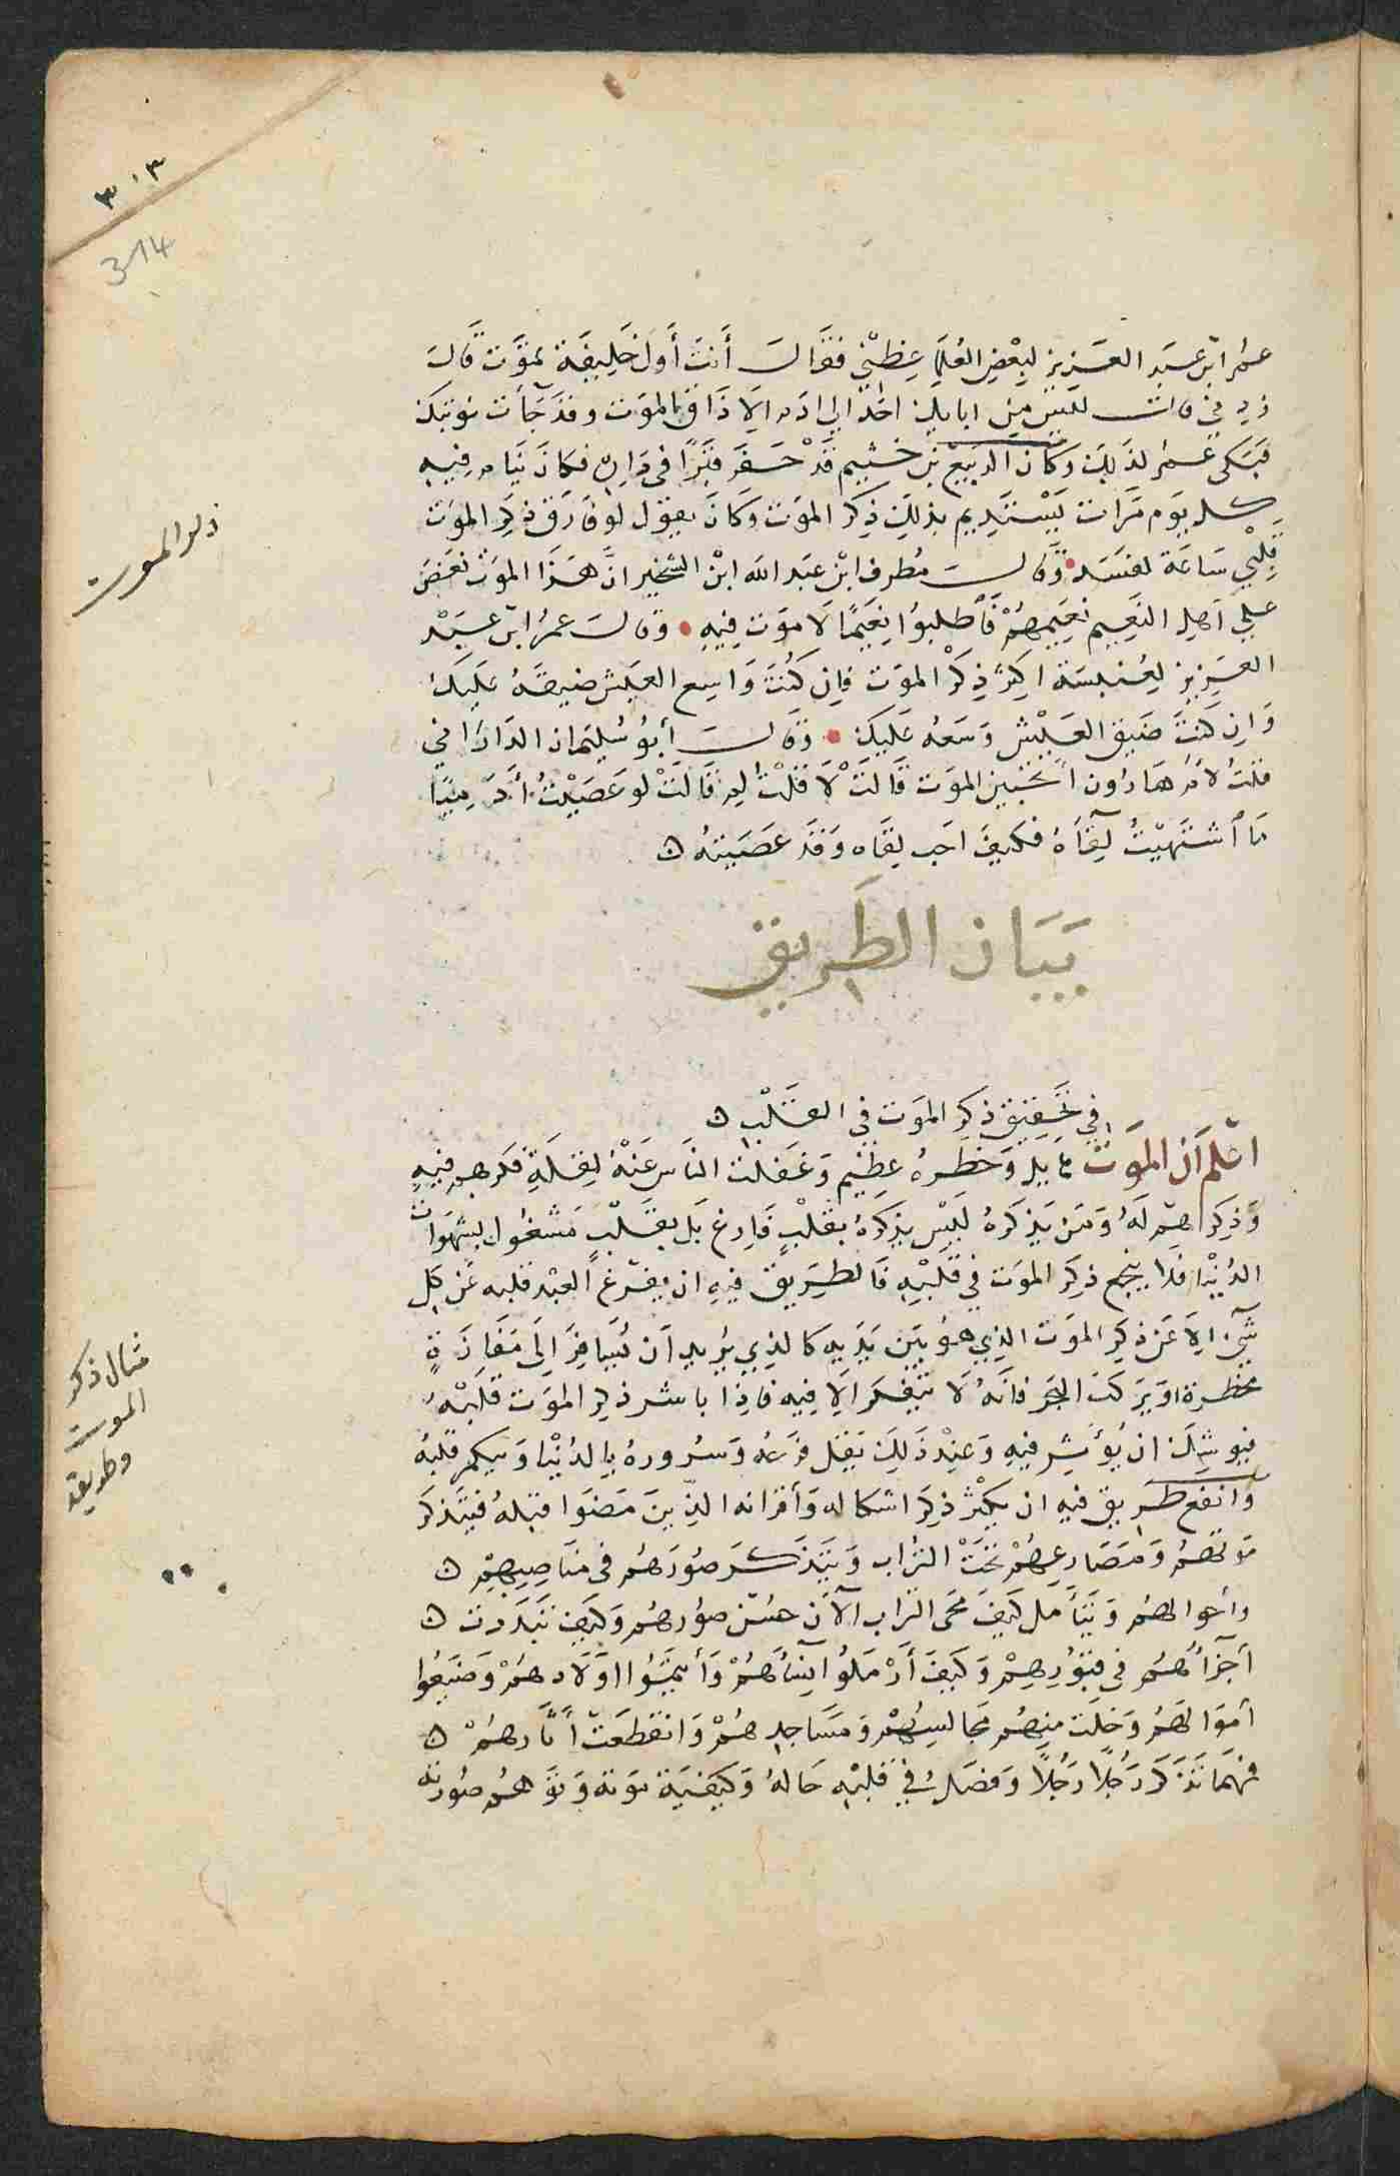 ٣٠٣
314
عمر ابن عبد العزيز لبعض العلما عظني فقال أنت أول خليفة تموت قال
زدني قال ليس من ابايك احد الي ادم الا ذاق الموت وقد جأت نوبتك
فبكى عمر لذلك وكان الربيع بن خثيم قد حفر قبرًا في داره فكان ينام فيه
كل يوم مرات يستديم بذلك ذكر الموت وكان يقول لو فارق ذكر الموت
قلبي ساعة لفسد وقال مطرف ابن عبد الله ابن الشخير ان هذا الموت نغص
على اهل النعيم نعيمهم فاطلبوا نعيمًا لا موت فيه وقال عمر ابن عبد
العزيز لعنبسة اكثر ذكر الموت فان كنت واسع العيش ضيقه عليك
وان كنت ضيق العيش وسعه عليك وقال أبو سليمان الداراني
قلت لام هارون اتحبين الموت قالت لا قلت لم قالت لو عصيت أدميًا
ما اشتهيت لقآه فكيف احب لقاه وقد عصيته
بيان الطريق
في تحقيق ذكر الموت في القلب
اعلم أن الموت هايل وخطره عظيم وغفلت الناس عنه لقلة فكرهم فيه
وذكراهم له ومن يذكره ليس يذكره بقلب فارغ بل بقلب مشغول بشهوات
الدنيا فلا ينجع ذكر الموت في قلبه فالطريق فيه ان يفرغ العبد قلبه عن كل
شيء الا عن ذكر الموت الذي هو بين يديه كالذي يريد أن يسافر الى مفازة
مخطرة او يركب البحر فانه لا يتفكر الا فيه فاذا باشر ذكر الموت قلبه
فيوشك ان يؤثر فيه وعند ذلك يقل فرحه وسروره بالدنيا وينكسر قلبه
وانفع طريق فيه ان يكثر ذكر اشكاله وأقرانه الذين مضوا قبله فيتذكر
موتهم ومصارعهم تحت التراب ويتذكر صورهم في مناصبهم
وأحوالهم ويتأمل كيف محى التراب الآن حسن صورهم وكيف تبددت
أجزآهم في قبورهم وكيف أرملوا نسآهم وأيتموا اولادهم وضيعوا
أموالهم وخلت منهم مجالسهم ومساجدهم وانقطعت أثارهم
فمهما تذكر رجلًا رجلًا وفصل في قلبه حاله وكيفية موته وتوهم صورته
ذكر الموت
مثال ذكر
الموت
وطريقه